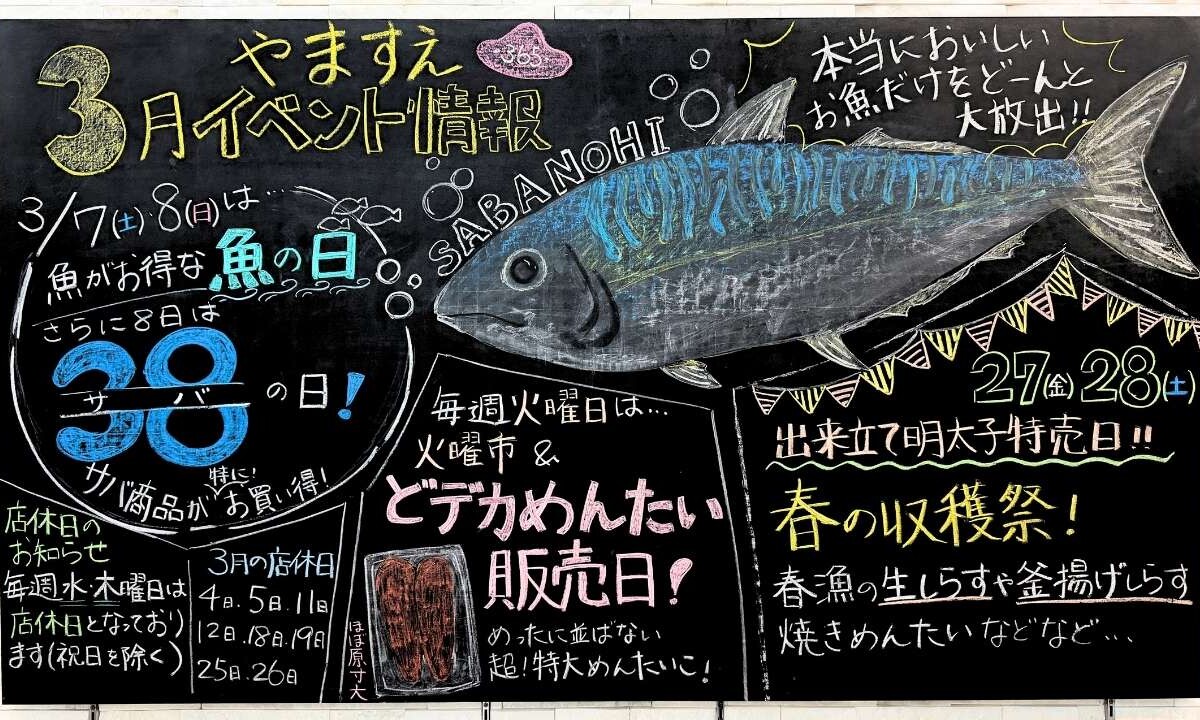 やますえ
365
3月イベント情報
本当においしい
お魚だけをどーんと
大放出!!
SABANOHI
3/7(土)・8(日)は…
魚がお得な魚の日
さらに8日は
38の日!
サバ
特に!
サバ商品がお買い得!
店休日の
お知らせ
毎週水・木曜日は
店休日となっており
ます(祝日を除く)
3月の店休日
4日、5日、11日
12日、18日、19日
25日、26日
毎週火曜日は…
火曜市&
どデカめんたい
販売日!
ほぼ原寸大
めったに並ばない
超!特大めんたいこ!
27(金)28(土)
出来立て明太子特売日!!
春の収穫祭!
春漁の生しらすや釜揚げしらす
焼きめんたいなどなど…